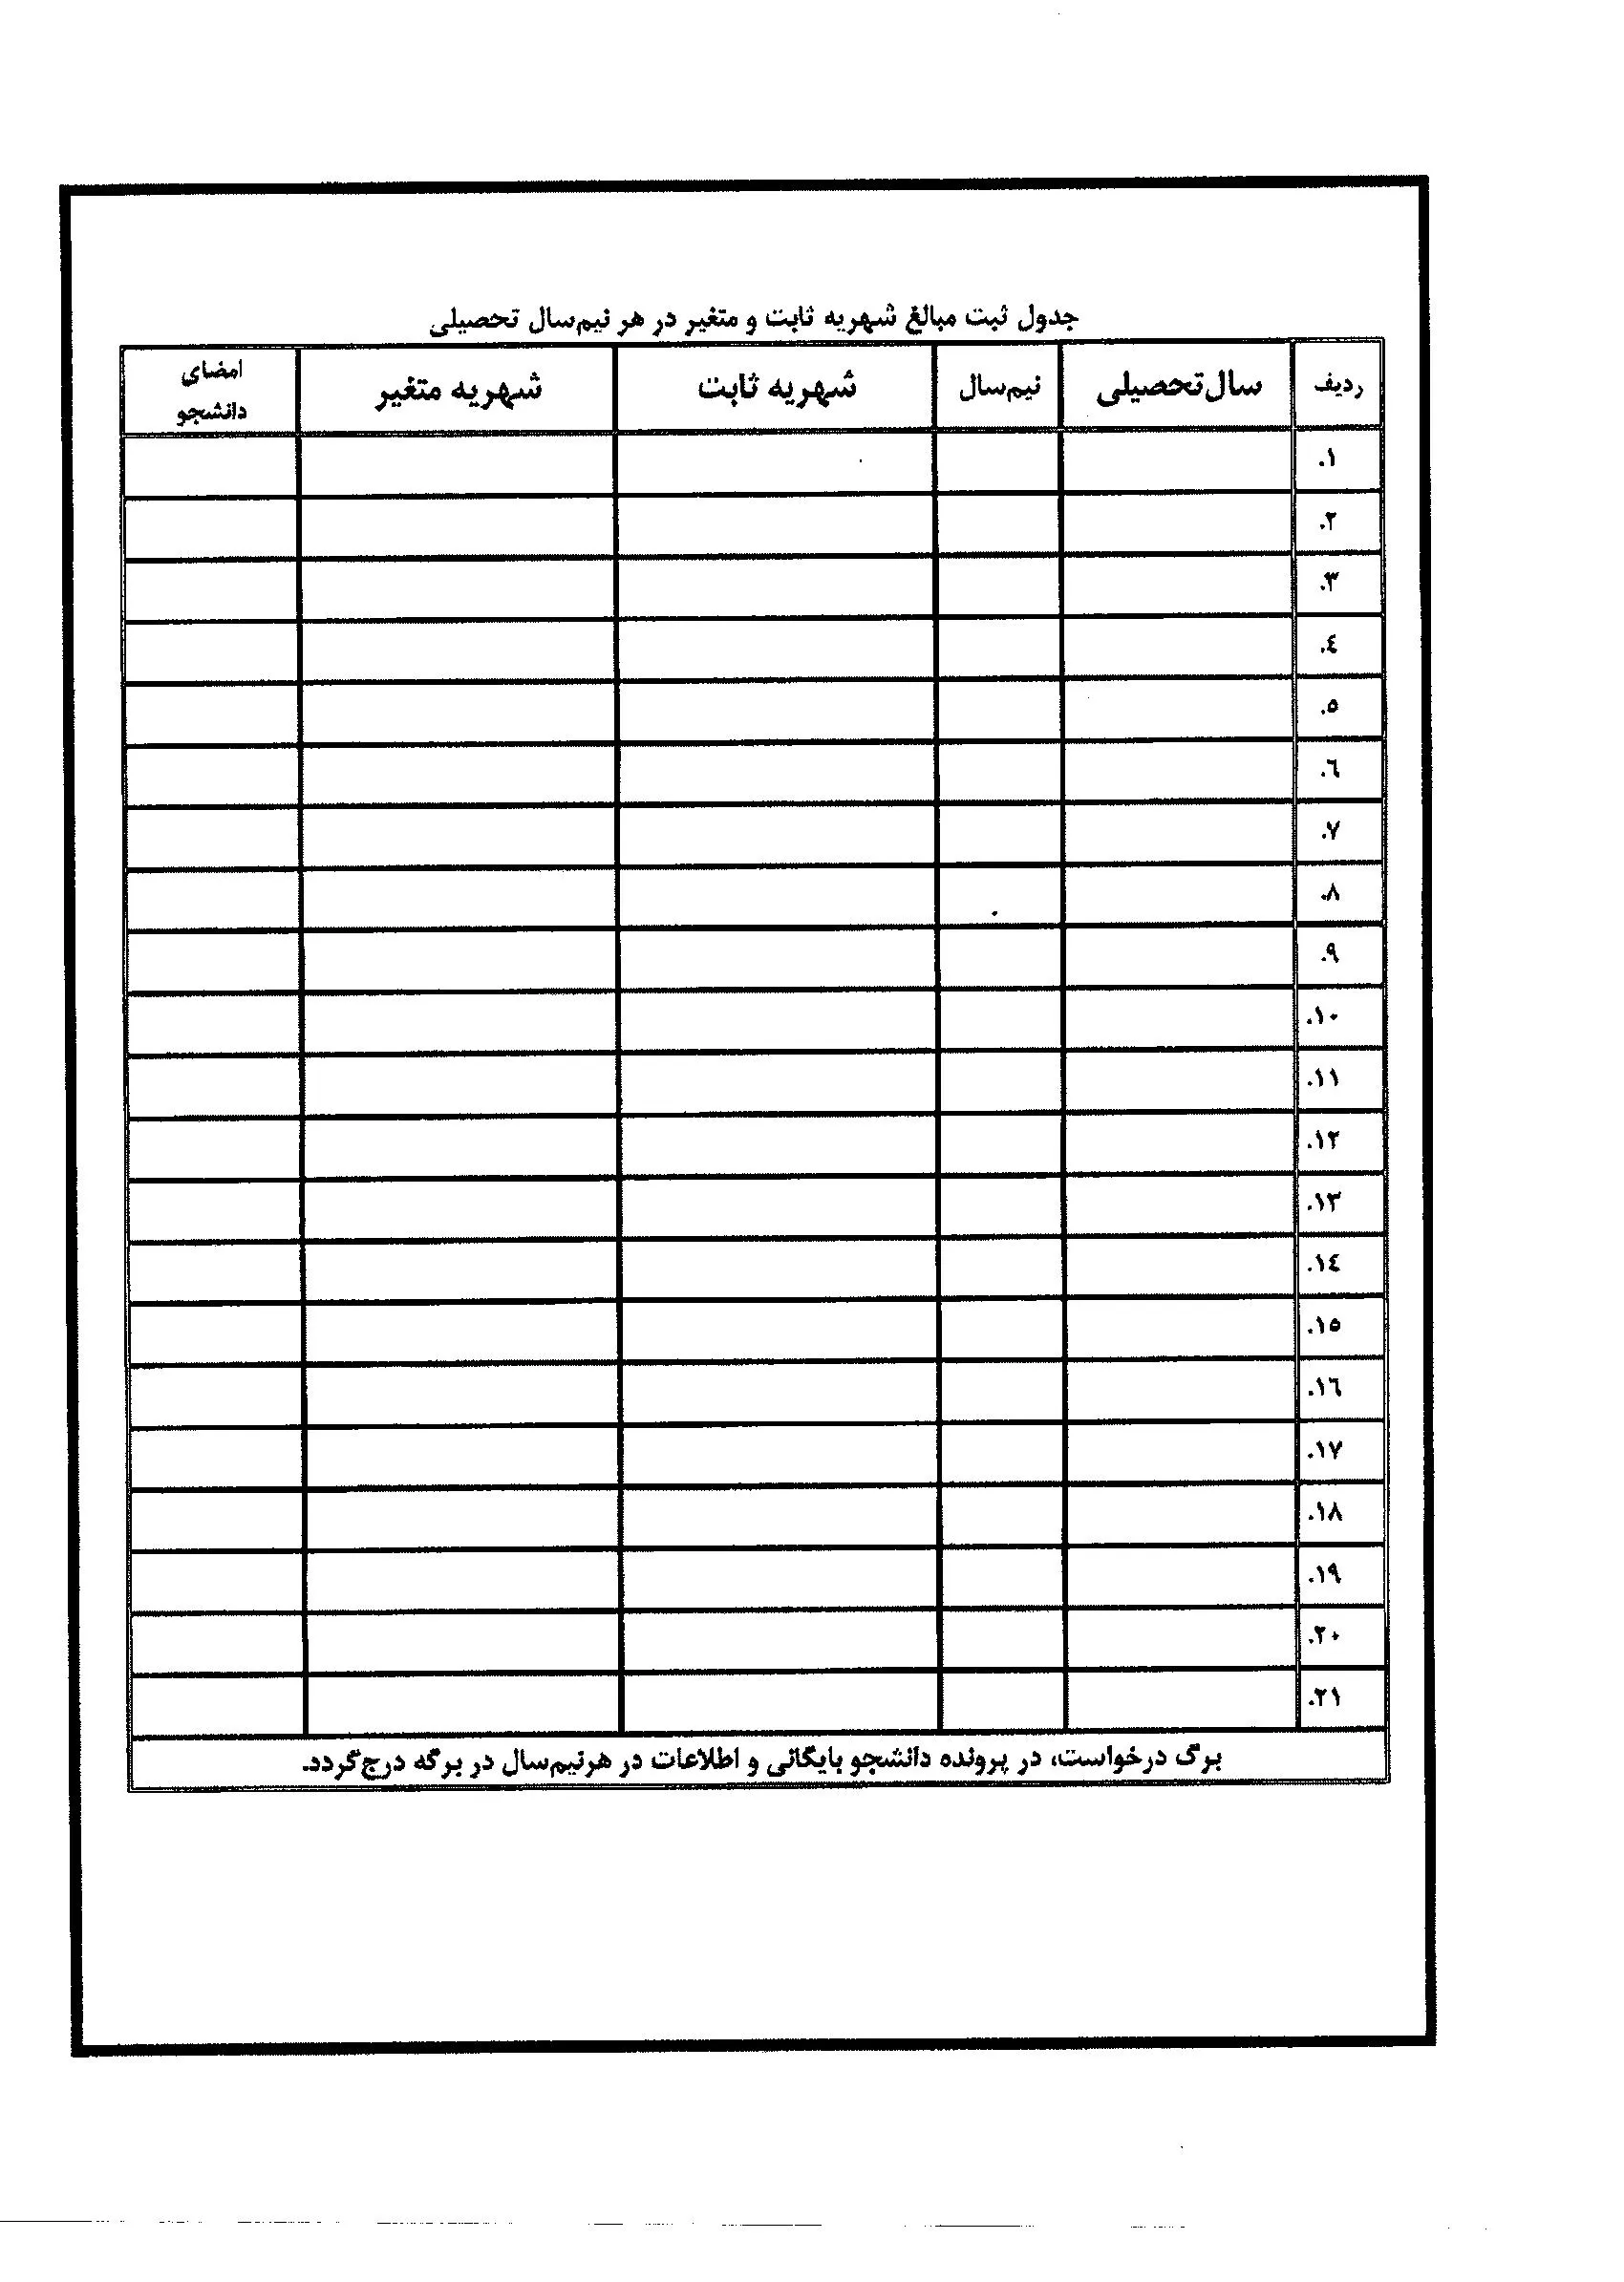 جدول ثبت مبالغ شهریه ثابت و متغیر در هر نیم‌سال تحصیلی
ردیف سال‌تحصیلی نیم‌سال شهریه ثابت شهریه متغیر امضای دانشجو
۱.
۲.
۳.
٤.
٥.
٦.
۷.
۸.
۹.
۱۰.
۱۱.
۱۲.
۱۳.
۱٤.
۱٥.
۱٦.
۱۷.
۱۸.
۱۹.
۲۰.
۲۱.
برگ درخواست، در پرونده دانشجو بایگانی و اطلاعات در هرنیم‌سال در برگه درج‌گردد.